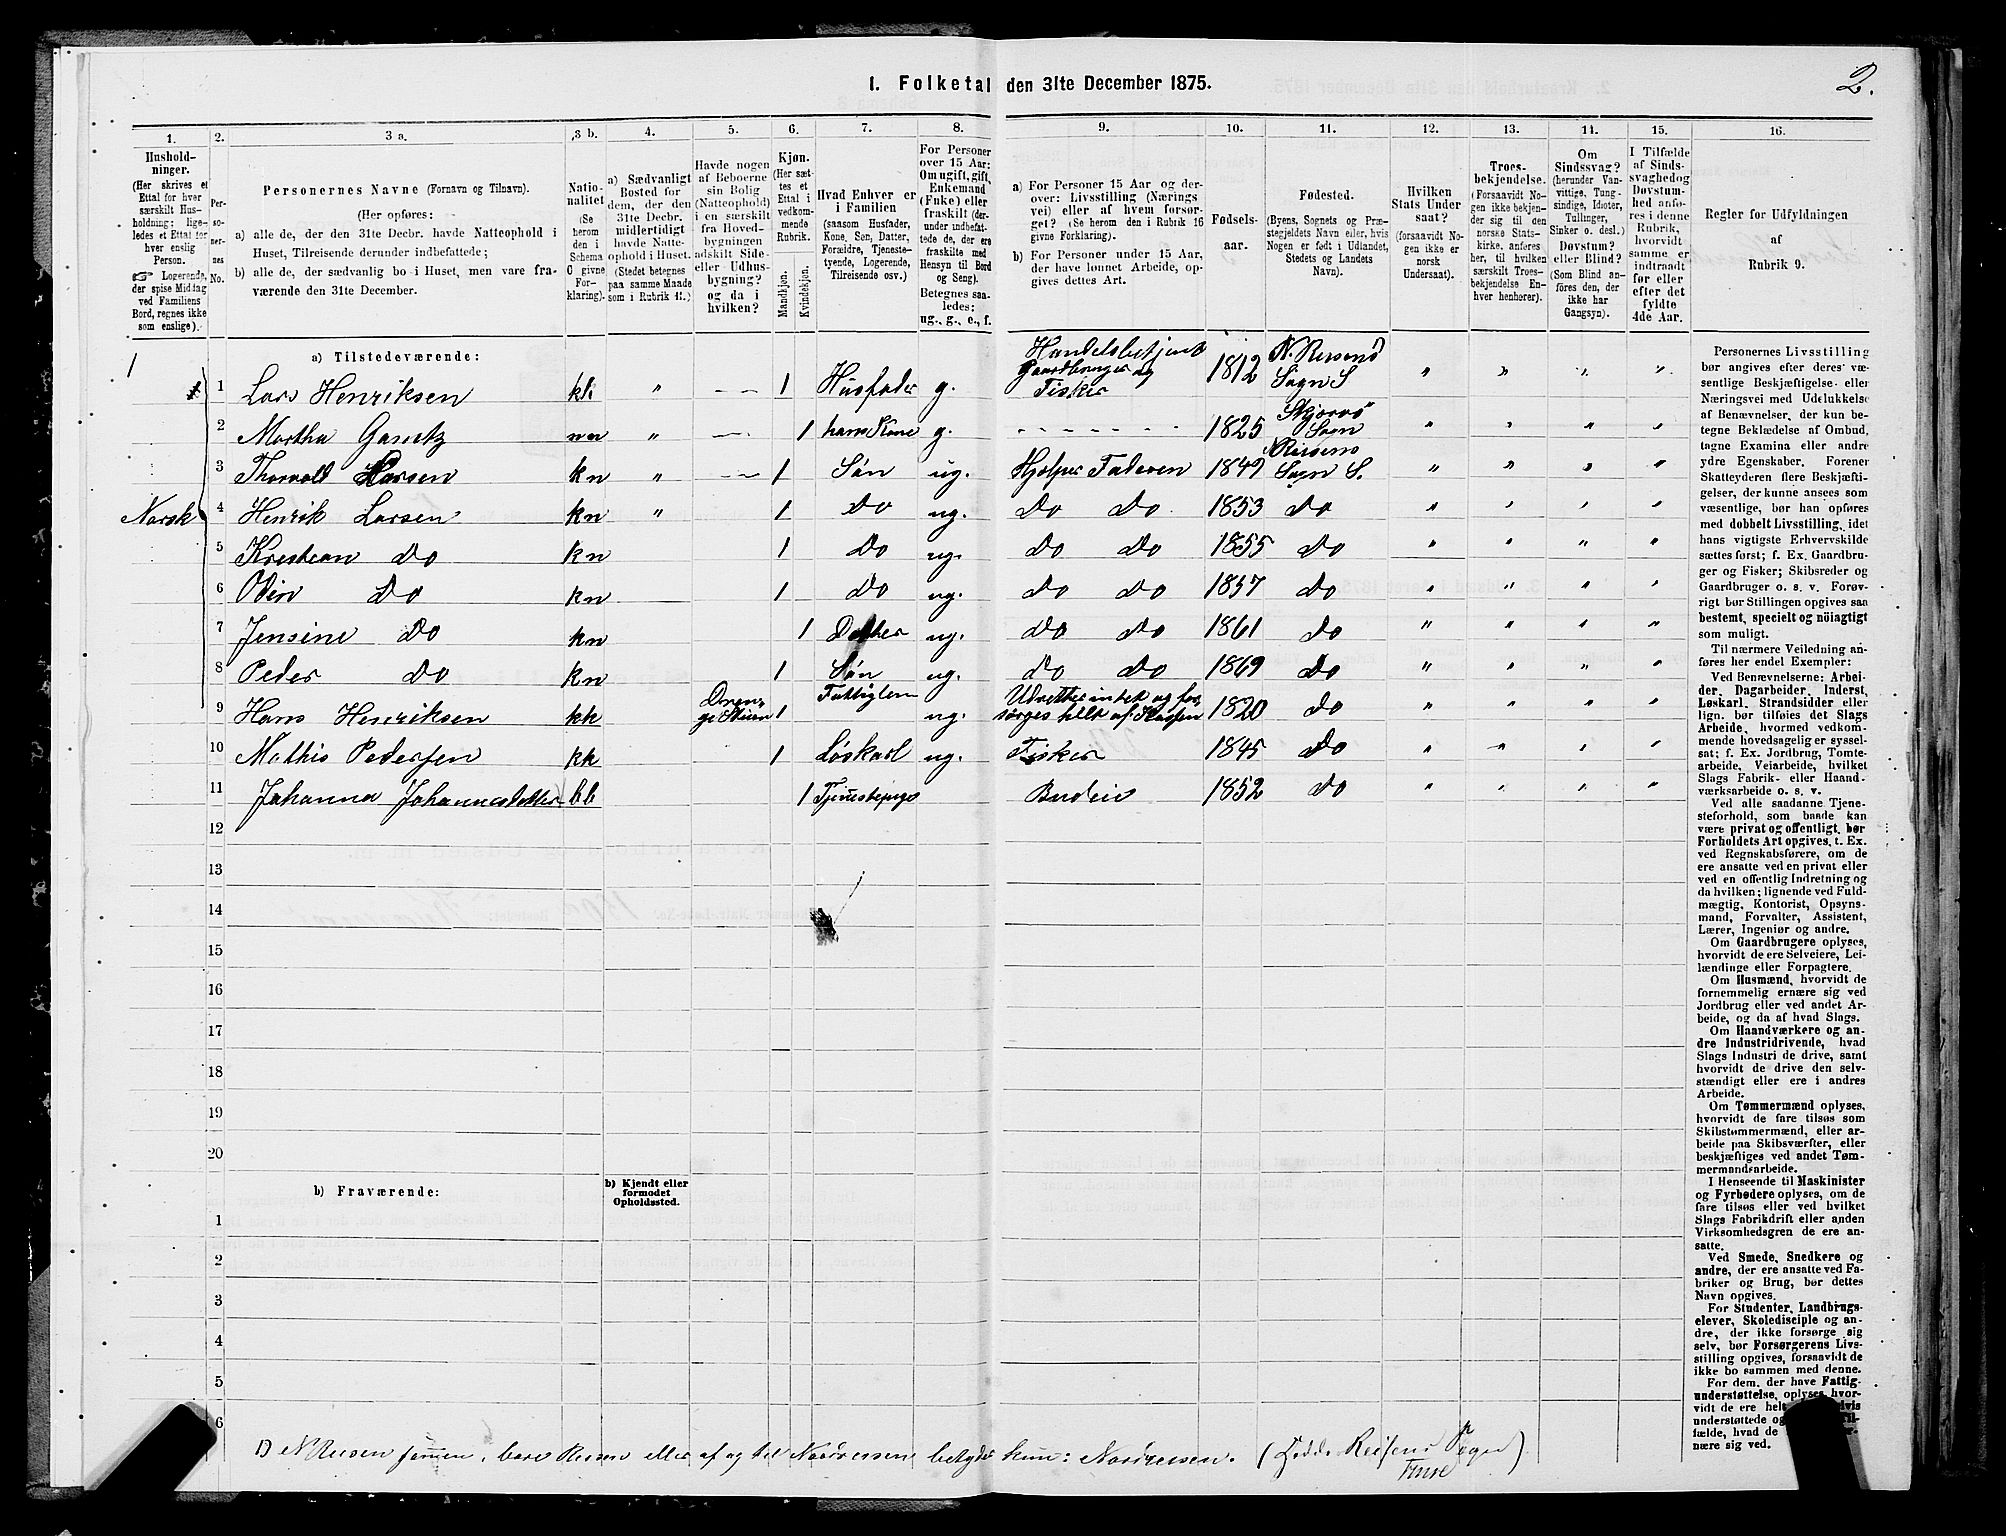 1. Folketal den 31te December 1875.
2.
1.
Hushold-
ninger.
(Her skrives et
Ettal for hver
særskilt Hus-
holdning; lige-
ledes et Ettal for
hver enslig
Person.
☞ Logerende,
der spise Middag
ved Familiens
Bord, regnes ikke
som enslige).
2.
Per-
so-
ner-
nes
No.
3 a.
Personernes Navne (Fornavn og Tilnavn).
(Her opføres:
a) alle de, der den 31te Decbr. havde Natteophold i
Huset, Tilreisende derunder indbefattede;
b) alle de, der sædvanlig bo i Huset, men vare fra-
værende den 31te December.
3 b.
Natio-
nalitet
(Se
herom
den i
Schema
C givne
For-
klaring).
4.
a) Sædvanligt
Bosted for
dem, der den
31te Decbr.
midlertidigt
havde Natte-
ophold i Huset.
(Stedet betegnes
paa samme Maade
som i Rubrik 11.)
5.
Havde nogen
af Beboerne
sin Bolig
(Natteophold)
i en særskilt
fra Hoved-
bygningen
adskilt Side-
eller Udhus-
bygning?
og da i
hvilken?
6.
Kjøn.
(Her sæt-
tes et
Ettal i
vedkom-
mende
Rubrik.
Mandkjøn.
Kvindekjøn.
7.
Hvad Enhver er
i Familien
(saasom Husfader,
Kone, Søn, Datter,
Forældre, Tjeneste-
tyende, Logerende,
Tilreisende osv.)
8.
For Personer
over 15 Aar:
Om ugift, gift,
Enkemand
(Enke) eller
fraskilt (der-
under indbefat-
tede de, der ere
fraskilte med
Hensyn til Bord
og Seng).
Betegnes saa-
ledes:
ug., g., e., f.
9.
a) For Personer 15 Aar og der-
over: Livsstilling (Nærings
vei) eller af hvem forsør-
get? (Se herom den i Rubrik 16
givne Forklaring).
b) For Personer under 15 Aar,
der have lønnet Arbeide, op-
gives dettes Art.
10.
Fødsels-
aar.
11.
Fødested.
(Byens, Sognets og Præ-
stegjeldets Navn eller, hvis
Nogen er født i Udlandet,
Stedets og Landets
Navn).
12.
Hvilken
Stats Under
saat?
(forsaavidt No-
gen ikke er
norsk
Undersaat).
13.
Troes-
bekjendelse.
(Forsaavidt No-
gen ikke bekjen-
der sig til den
norske Stats-
kirke, anføres
her, til hvilken
særskilt Troes-
bekjendelse En-
hver henhører).
14.
Om
Sindssvag?
(herunder Van-
vittige, Tung-
sindige, Idioter,
Tullinger,
Sinker o. desl.)
Døvstum?
eller Blind?
(Som Blind an-
føres den, der
ikke har
Gangsyn).
15.
I Tilfælde
af Sinds-
svaghed og
Døvstum-
hed anfø-
res i denne
Rubrik,
hvorvidt
samme er
indtraadt
før eller
efter det
fyldte
4de Aar.
16.
Regler for Udfyldningen
af
Rubrik 9.
a) Tilstedeværende:
1
1 Lars Henriksen " 1 Husfader g. Handelsbetjent Gaardbruger og Fisker 1812 N. Reisens 1) Sogn S " " " "
2 Martha " 1 hans Kone g. 1825 Skjervø Sogn " " " "
3 Thorvald Larsen kn " 1 Søn ug. Hjelper Faderen 1849 Reisens Sogn S. " " " "
Norsk 4 Henrik Larsen kn " 1 Do ug. Do Do 1853 Do " " " "
5 Kristean Do kn 1 Do ug. Do Do 1855 Do " " " "
6 Odin Do kn 1 Do ug. Do Do 1857 Do " " " "
7 Jensine Do kn 1 Datter ug. Do Do 1861 Do " " " "
8 Peder Do kn 1 Søn ug. Do Do 1869 Do " " " "
9 Hans Henriksen kk Dren- ge Stuen 1 Fattiglem ug. Udretter intet og for- sørges helt af Kassen 1820 Do " " " "
10 Mathis Pedersen kk 1 Løskarl ug. Fisker 1845 Do " " " "
11 Johanna Johannesdatter bb 1 Tjenestepige Budeie 1852 Do " " " "
12
13
14
15
16
17
18
19
20
b) Fraværende:
b) Kjendt eller
formodet
Opholdssted.
1
2
3
4
5
6
1) N Reisen sammen, bare Reisen eller af og til Nordreisen betyder kun: Nordreisen.
Personernes Livsstilling
bør angives efter deres væ-
sentlige Beskjæftigelse eller
Næringsvei med Udelukkelse
af Benævnelser, der kun be-
tegne Beklædelse af Ombud,
tagne Examina eller andre
ydre Egenskaber. Forener
Skatteyderen flere Beskjæfti-
gelser, der kunne ansees som
væsentlige, bør han opføres
med dobbelt Livsstilling, idet
hans vigtigste Erhvervskilde
sættes først; f. Ex. Gaardbru-
ger og Fisker; Skibsreder og
Gaardbruger o. s. v. Forøv-
rigt bør Stillingen opgives saa
bestemt, specielt og nöiagtigt
som muligt.
Til nærmere Veiledning an-
føres her endel Exempler:
Ved Benævnelserne: Arbei-
der, Dagarbeider, Inderst,
Løskarl, Strandsidder eller
lign. bør tilføies det Slags
Arbeide, hvormed vedkom-
mende hovedsagelig er syssel-
sat; f. Ex. Jordbrug, Tomte-
arbeide, Veiarbeide, hvilket
Slags Fabrik- eller Haand-
værksarbeide o. s. v.
Ved alle saadanne Tjene-
steforhold, som baade kan
være privat og offentligt, bør
Forholdets Art opgives, t. Ex.
ved Regnskabsførere, om de
ere ansatte ved en privat eller
ved en offentlig Indretning og
da hvilken; lignende ved Fuld-
mægtig, Kontorist, Opsyns-
mand, Forvalter, Assistent,
Lærer, Ingeniør og andre.
Om Gaardbrugere oplyses,
hvorvidt de ere Selveiere, Lei-
lændinge eller Forpagtere.
Om Husmænd, hvorvidt de
fornemmelig ernære sig ved
Jordbrug eller ved andet Ar-
beide, og da af hvad Slags.
Om Haandværkere og an-
dre Industridrivende, hvad
Slags Industri de drive, samt
hvorvidt de drive den selv-
stændigt eller ere i andres
Arbeide.
Om Tømmermænd oplyses,
hvorvidt de fare tilsøs som
Skibstømmermænd, eller ar-
beide paa Skibsværfter, eller
beskjæftiges ved andet Tøm-
mermandsarbeide.
I Henseende til Maskinister
og Fyrbødere oplyses, om de
fare tilsøs eller ved hvilket
Slags Fabrikdrift eller anden
Virksomhedsgren de ere an-
satte.
Ved Smede, Snedkere og
andre, der ere ansatte ved Fa-
briker og Brug, bør dettes
Navn opgives.
For Studenter, Landbrugs-
elever, Skoledisciple og an-
dre, der ikke forsørge sig
selv, bør Forsørgerens Livs-
stilling opgives, forsaavidt de
ikke bo sammen med denne.
For dem, der have Fattig-
understøttelse, oplyses, hvor-
vidt de ere helt
understøttede og
fælde, hvad de
nære sig ved.